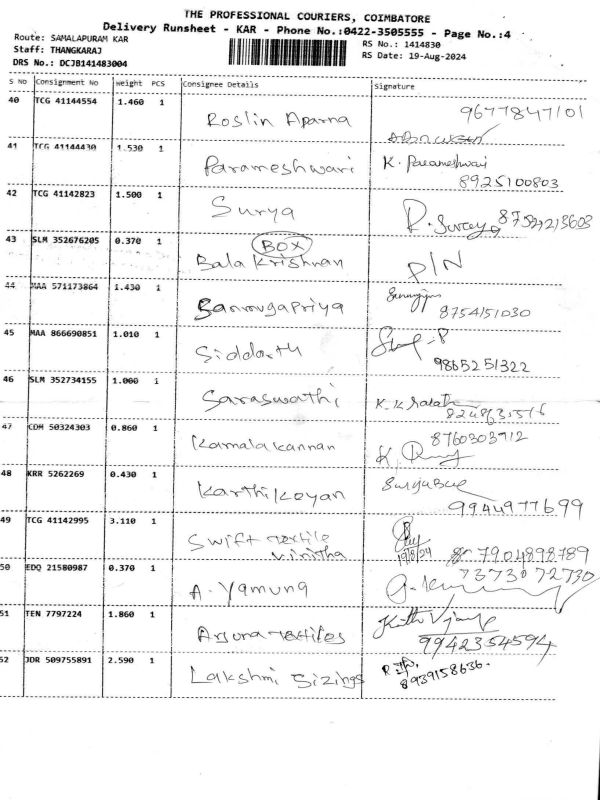 THE PROFESSIONAL COURIERS, COIMBATORE
Delivery Runsheet - KAR - Phone No.:0422-3505555 - Page No.:4
Route: SAMALAPURAM KAR
RS No.: 1414830
Staff: THANGKARAJ
RS Date: 19-Aug-2024
DRS No.: DCJB141483004
S No Consignment No Weight PCS Consignee Details Signature
40 TCG 41144554 1.460 1 Roslin Aparna 9677847101
41 TCG 41144430 1.530 1 Parameshwari K. Parameshwari
8925100803
42 TCG 41142823 1.500 1 Surya
43 SLM 352676205 0.370 1 BOX
Bala Krishnan P/N
44 MAA 571173864 1.430 1 Sanmugapriya
8754151030
45 MAA 866690851 1.010 1 Siddarth
9865251322
46 SLM 352734155 1.000 1 Saraswathi
47 CDM 50324303 0.860 1 Kamalakannan 8760303912
48 KRR 5262269 0.430 1 Karthikeyan
9944977699
49 TCG 41142995 3.110 1 Swift textile
Vinitha 19/8/24 7904898789
50 EDQ 21580987 0.370 1 A. Yamuna 73730 72730
51 TEN 7797224 1.860 1 Arjuna textiles
9942354594
52 JDR 509755891 2.590 1 Lakshmi Sizings
8939158636.